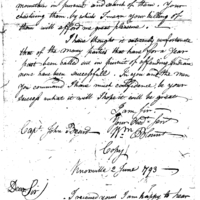 months in pursuit and search of them. Your
chastising them, by which I mean your killing of
them will afford me great pleasure.
I have thought it extremely unfortunate
that of the many parties that have for a year
past been called out in pursuit of offending Indians
none have been successfull. In you and the men
you command I have much confidence; be your
success what it will I hope it will be great
I am Sir
Your Obt. Servt.
Wm. Blount
Capt. John Beard
Copy
Knoxville 2 June 1793
Dear Sir)
I received yours I am happy to hear